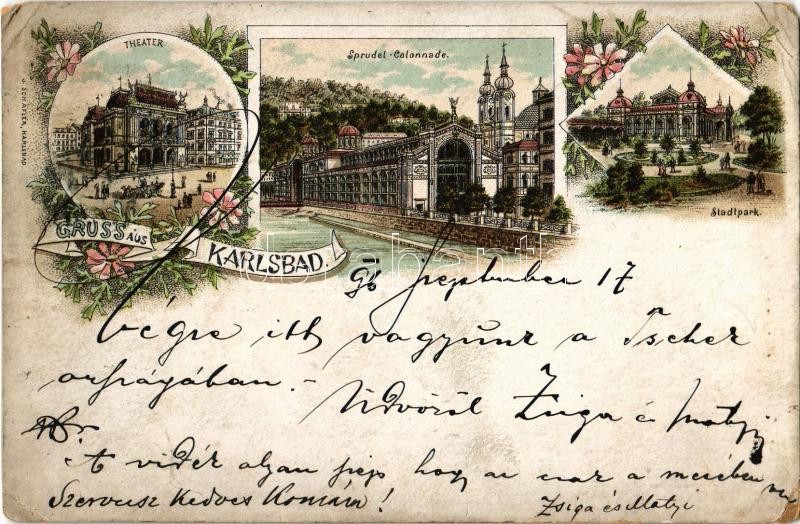 THEATER
Sprudel-Colonnade.
Stadtpark.
SCHÄFLER, KARLSBAD
GRUSS AUS
KARLSBAD.
96 September 17
Végre itt vagyunk a Tscher
országában. -
Üdvözöl Zsiga és Matyi
A vidék olyan szép hogy az csak a mesében van
Szervusz Kedves Komám!
Zsiga és Matyi